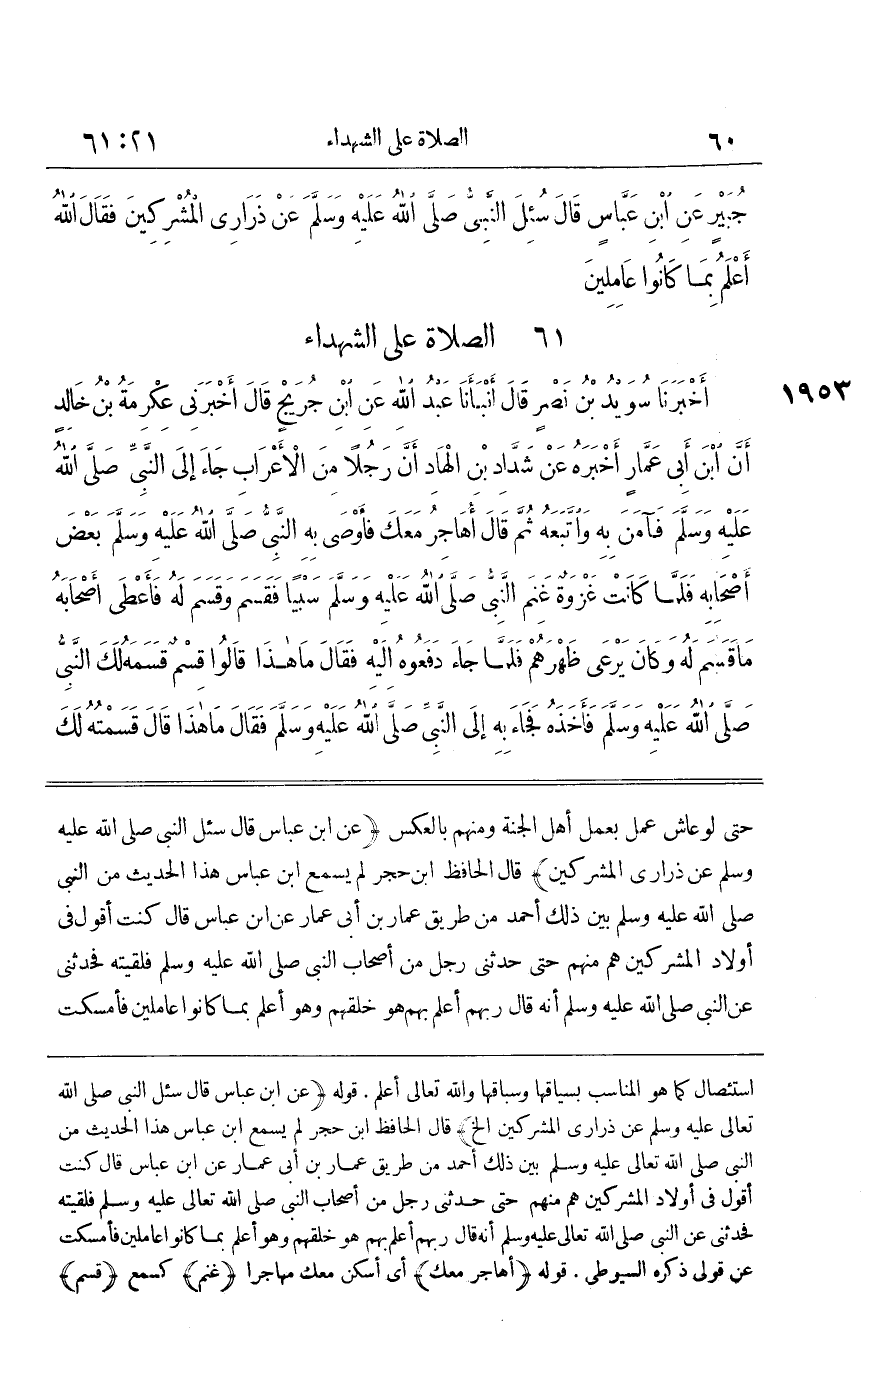 ٦٠ الصلاة على الشهداء ٢١:٦١
جُبَيْرٍ عَنِ ابْنِ عَبَّاسٍ قَالَ سُئِلَ النَّبِيُّ صَلَّى اللهُ عَلَيْهِ وَسَلَّمَ عَنْ ذَرَارِى الْمُشْرِكِينَ فَقَالَ اللهُ
أَعْلَمُ بِمَا كَانُوا عَامِلِينَ
٦١ الصلاة على الشهداء
١٩٥٣ أَخْبَرَنَا سُوَيْدُ بْنُ نَصْرٍ قَالَ أَنْبَأَنَا عَبْدُ اللهِ عَنِ ابْنِ جُرَيْجٍ قَالَ أَخْبَرَنِى عِكْرِمَةُ بْنُ خَالِدٍ
أَنَّ ابْنَ أَبِى عَمَّارٍ أَخْبَرَهُ عَنْ شَدَّادِ بْنِ الْهَادِ أَنَّ رَجُلًا مِنَ الْأَعْرَابِ جَاءَ إِلَى النَّبِىِّ صَلَّى اللهُ
عَلَيْهِ وَسَلَّمَ فَآمَنَ بِهِ وَاتَّبَعَهُ ثُمَّ قَالَ أُهَاجِرُ مَعَكَ فَأَوْصَى بِهِ النَّبِىُّ صَلَّى اللهُ عَلَيْهِ وَسَلَّمَ بَعْضَ
أَصْحَابِهِ فَلَمَّا كَانَتْ غَزْوَةٌ غَنِمَ النَّبِىُّ صَلَّى اللهُ عَلَيْهِ وَسَلَّمَ سَبْيًا فَقَسَمَ وَقَسَمَ لَهُ فَأَعْطَى أَصْحَابَهُ
مَا قَسَمَ لَهُ وَكَانَ يَرْعَى ظَهْرَهُمْ فَلَمَّا جَاءَ دَفَعُوهُ إِلَيْهِ فَقَالَ مَا هٰذَا قَالُوا قِسْمٌ قَسَمَهُ لَكَ النَّبِىُّ
صَلَّى اللهُ عَلَيْهِ وَسَلَّمَ فَأَخَذَهُ فَجَاءَ بِهِ إِلَى النَّبِىِّ صَلَّى اللهُ عَلَيْهِ وَسَلَّمَ فَقَالَ مَا هٰذَا قَالَ قَسَمْتُهُ لَكَ
حتى لو عاش عمل بعمل أهل الجنة ومنهم بالعكس ﴿عن ابن عباس قال سئل النبى صلى الله عليه
وسلم عن ذرارى المشركين﴾ قال الحافظ ابن حجر لم يسمع ابن عباس هذا الحديث من النبى
صلى الله عليه وسلم بين ذلك أحمد من طريق عمار بن أبى عمار عن ابن عباس قال كنت أقول فى
أولاد المشركين هم منهم حتى حدثنى رجل من أصحاب النبى صلى الله عليه وسلم فلقيته فحدثنى
عن النبى صلى الله عليه وسلم أنه قال ربهم أعلم بهم هو خلقهم وهو أعلم بما كانوا عاملين فأمسكت
استئصال كما هو المناسب بسياقها وسباقها والله تعالى أعلم . قوله ﴿عن ابن عباس قال سئل النبى صلى الله
تعالى عليه وسلم عن ذرارى المشركين الخ﴾ قال الحافظ ابن حجر لم يسمع ابن عباس هذا الحديث من
النبى صلى الله تعالى عليه وسلم بين ذلك أحمد من طريق عمار بن أبى عمار عن ابن عباس قال كنت
أقول فى أولاد المشركين هم منهم حتى حدثنى رجل من أصحاب النبى صلى الله تعالى عليه وسلم فلقيته
فحدثنى عن النبى صلى الله تعالى عليه وسلم أنه قال ربهم أعلم بهم هو خلقهم وهو أعلم بما كانوا عاملين فأمسكت
عن قولى ذكره السيوطى . قوله ﴿أهاجر معك﴾ أى أسكن معك مهاجرا ﴿غنم﴾ كسمع ﴿قسم﴾